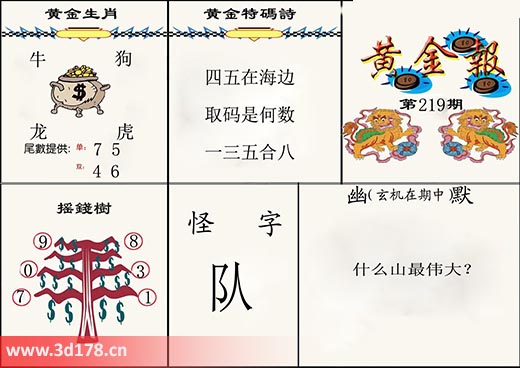 黄金生肖
牛 狗
$
龙 虎
尾數提供: 单: 7 5
双: 4 6
黄金特碼詩
四五在海边
取码是何数
一三五合八
黄金報
第219期
摇錢樹
9 8
0 3
7 1
$ $ $ $ $ $ $ $
怪字
队
幽(玄机在期中)默
什么山最伟大?
www.3d178.cn